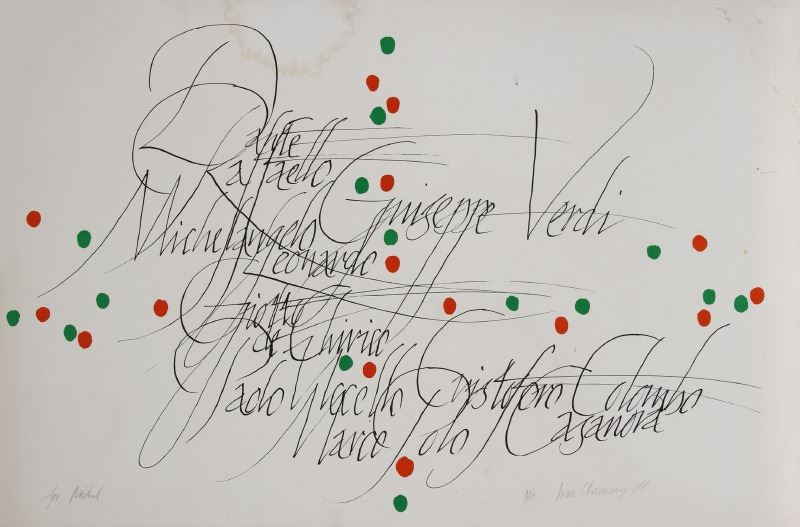 Dante
Raffaello
Giuseppe Verdi
Michelangelo
Leonardo
Giotto
de Chirico
Paolo Uccello Cristoforo Colombo
Marco Polo Casanova
for Michel
Ivan Chermayeff